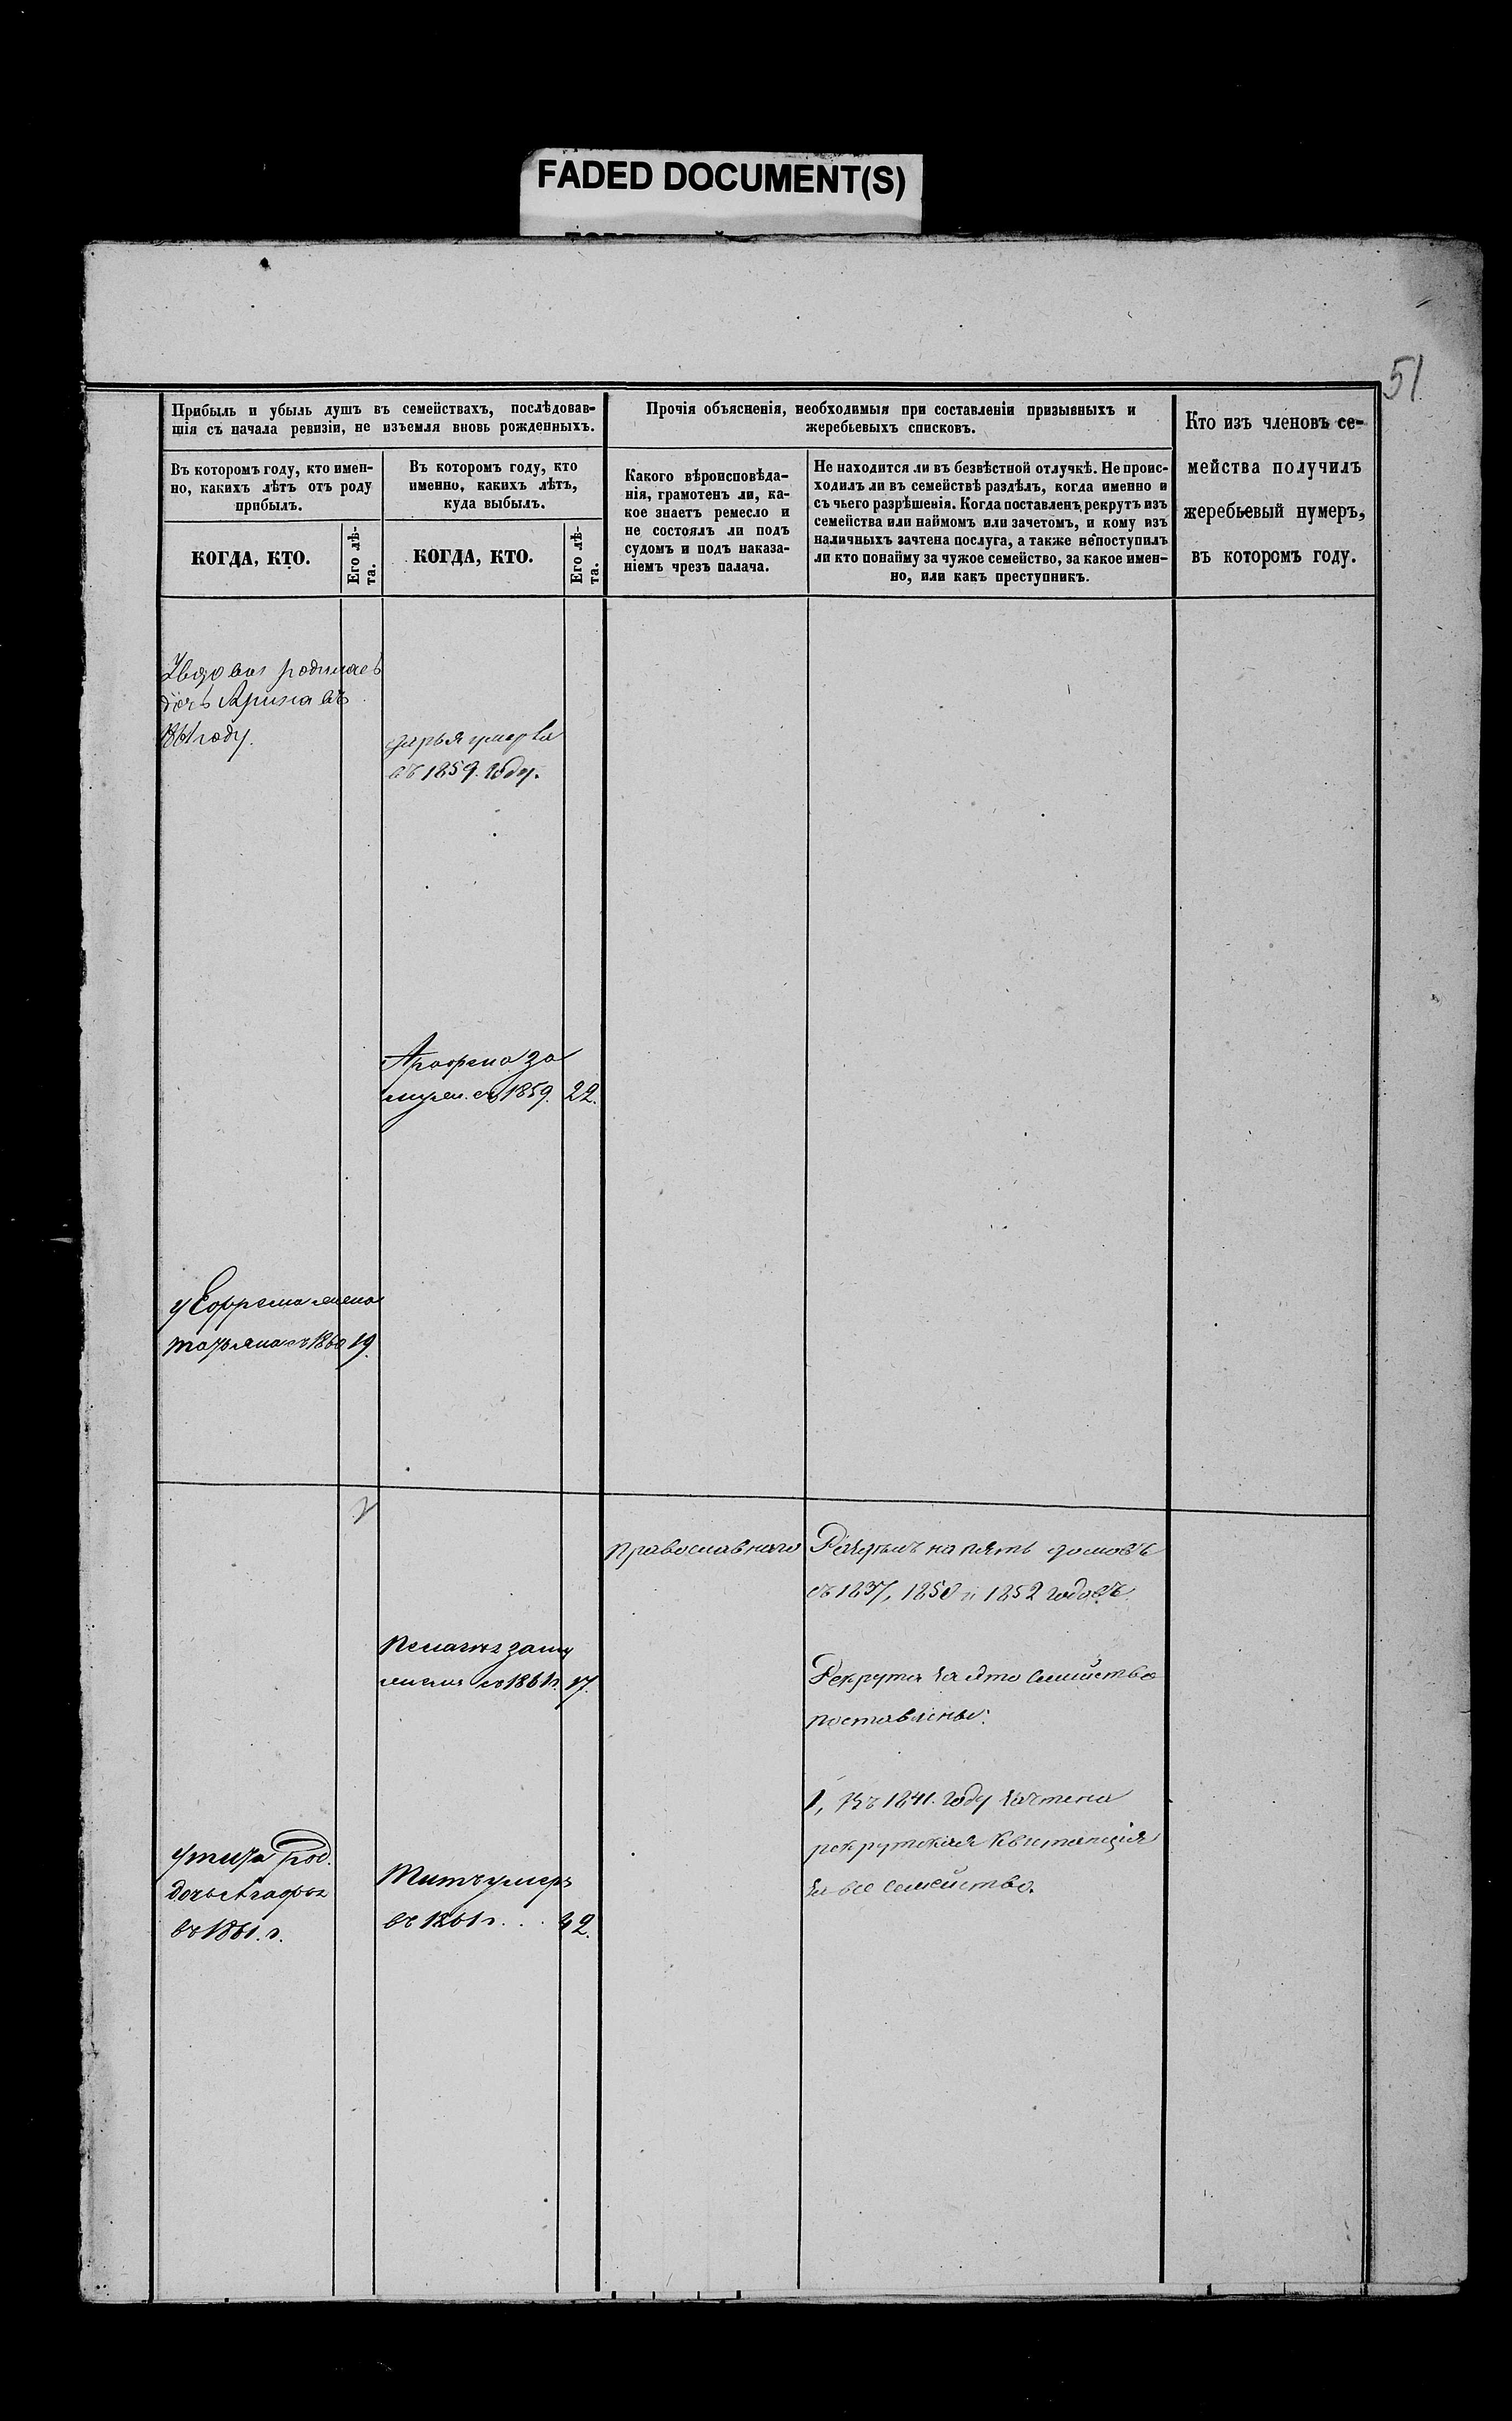 FADED DOCUMENT(S)
51
Прибыль и убыль душъ въ семействахъ, послѣдовав-
шія съ начала ревизіи, не изъемля вновь рожденныхъ.
Въ которомъ году, кто имен-
но, какихъ лѣтъ отъ роду
прибылъ.
КОГДА, КТО.
Его лѣ-
та.
Въ которомъ году, кто
именно, какихъ лѣтъ,
куда выбылъ.
КОГДА, КТО.
Его лѣ-
та.
Прочія объясненія, необходимыя при составленіи призывныхъ и
жеребьевыхъ списковъ.
Какого вѣроисповѣда-
нія, грамотенъ ли, ка-
кое знаетъ ремесло и
не состоялъ ли подъ
судомъ и подъ наказа-
ніемъ чрезъ палача.
Не находится ли въ безвѣстной отлучкѣ. Не проис-
ходилъ ли въ семействѣ раздѣлъ, когда именно и
съ чьего разрѣшенія. Когда поставленъ рекрутъ изъ
семейства или наймомъ или зачетомъ, и кому изъ
наличныхъ зачтена послуга, а также непоступилъ
ли кто понайму за чужое семейство, за какое имен-
но, или какъ преступникъ.
Кто изъ членовъ се-
мейства получилъ
жеребьевый нумеръ,
въ которомъ году.
родилась
дочь Арина въ
1861 году.
Дарья умерла
въ 1859. году.
за
мужем. въ 1859. 22.
у Ефрема жена
татьяна въ 1860 19.
2
православнаго
на пять домовъ
въ 1837, 1850 и 1852 годовъ.
Пелагея заму
жемъ въ 1861 г. 17.
Рекрута за это семейство
поставлены:
1, Въ 1841. году зачтена
рекрутская квитанція
за все семейство.
у тита род.
дочь Агафья
въ 1861. г.
Титъ умеръ
въ 1861 г. . . 42.